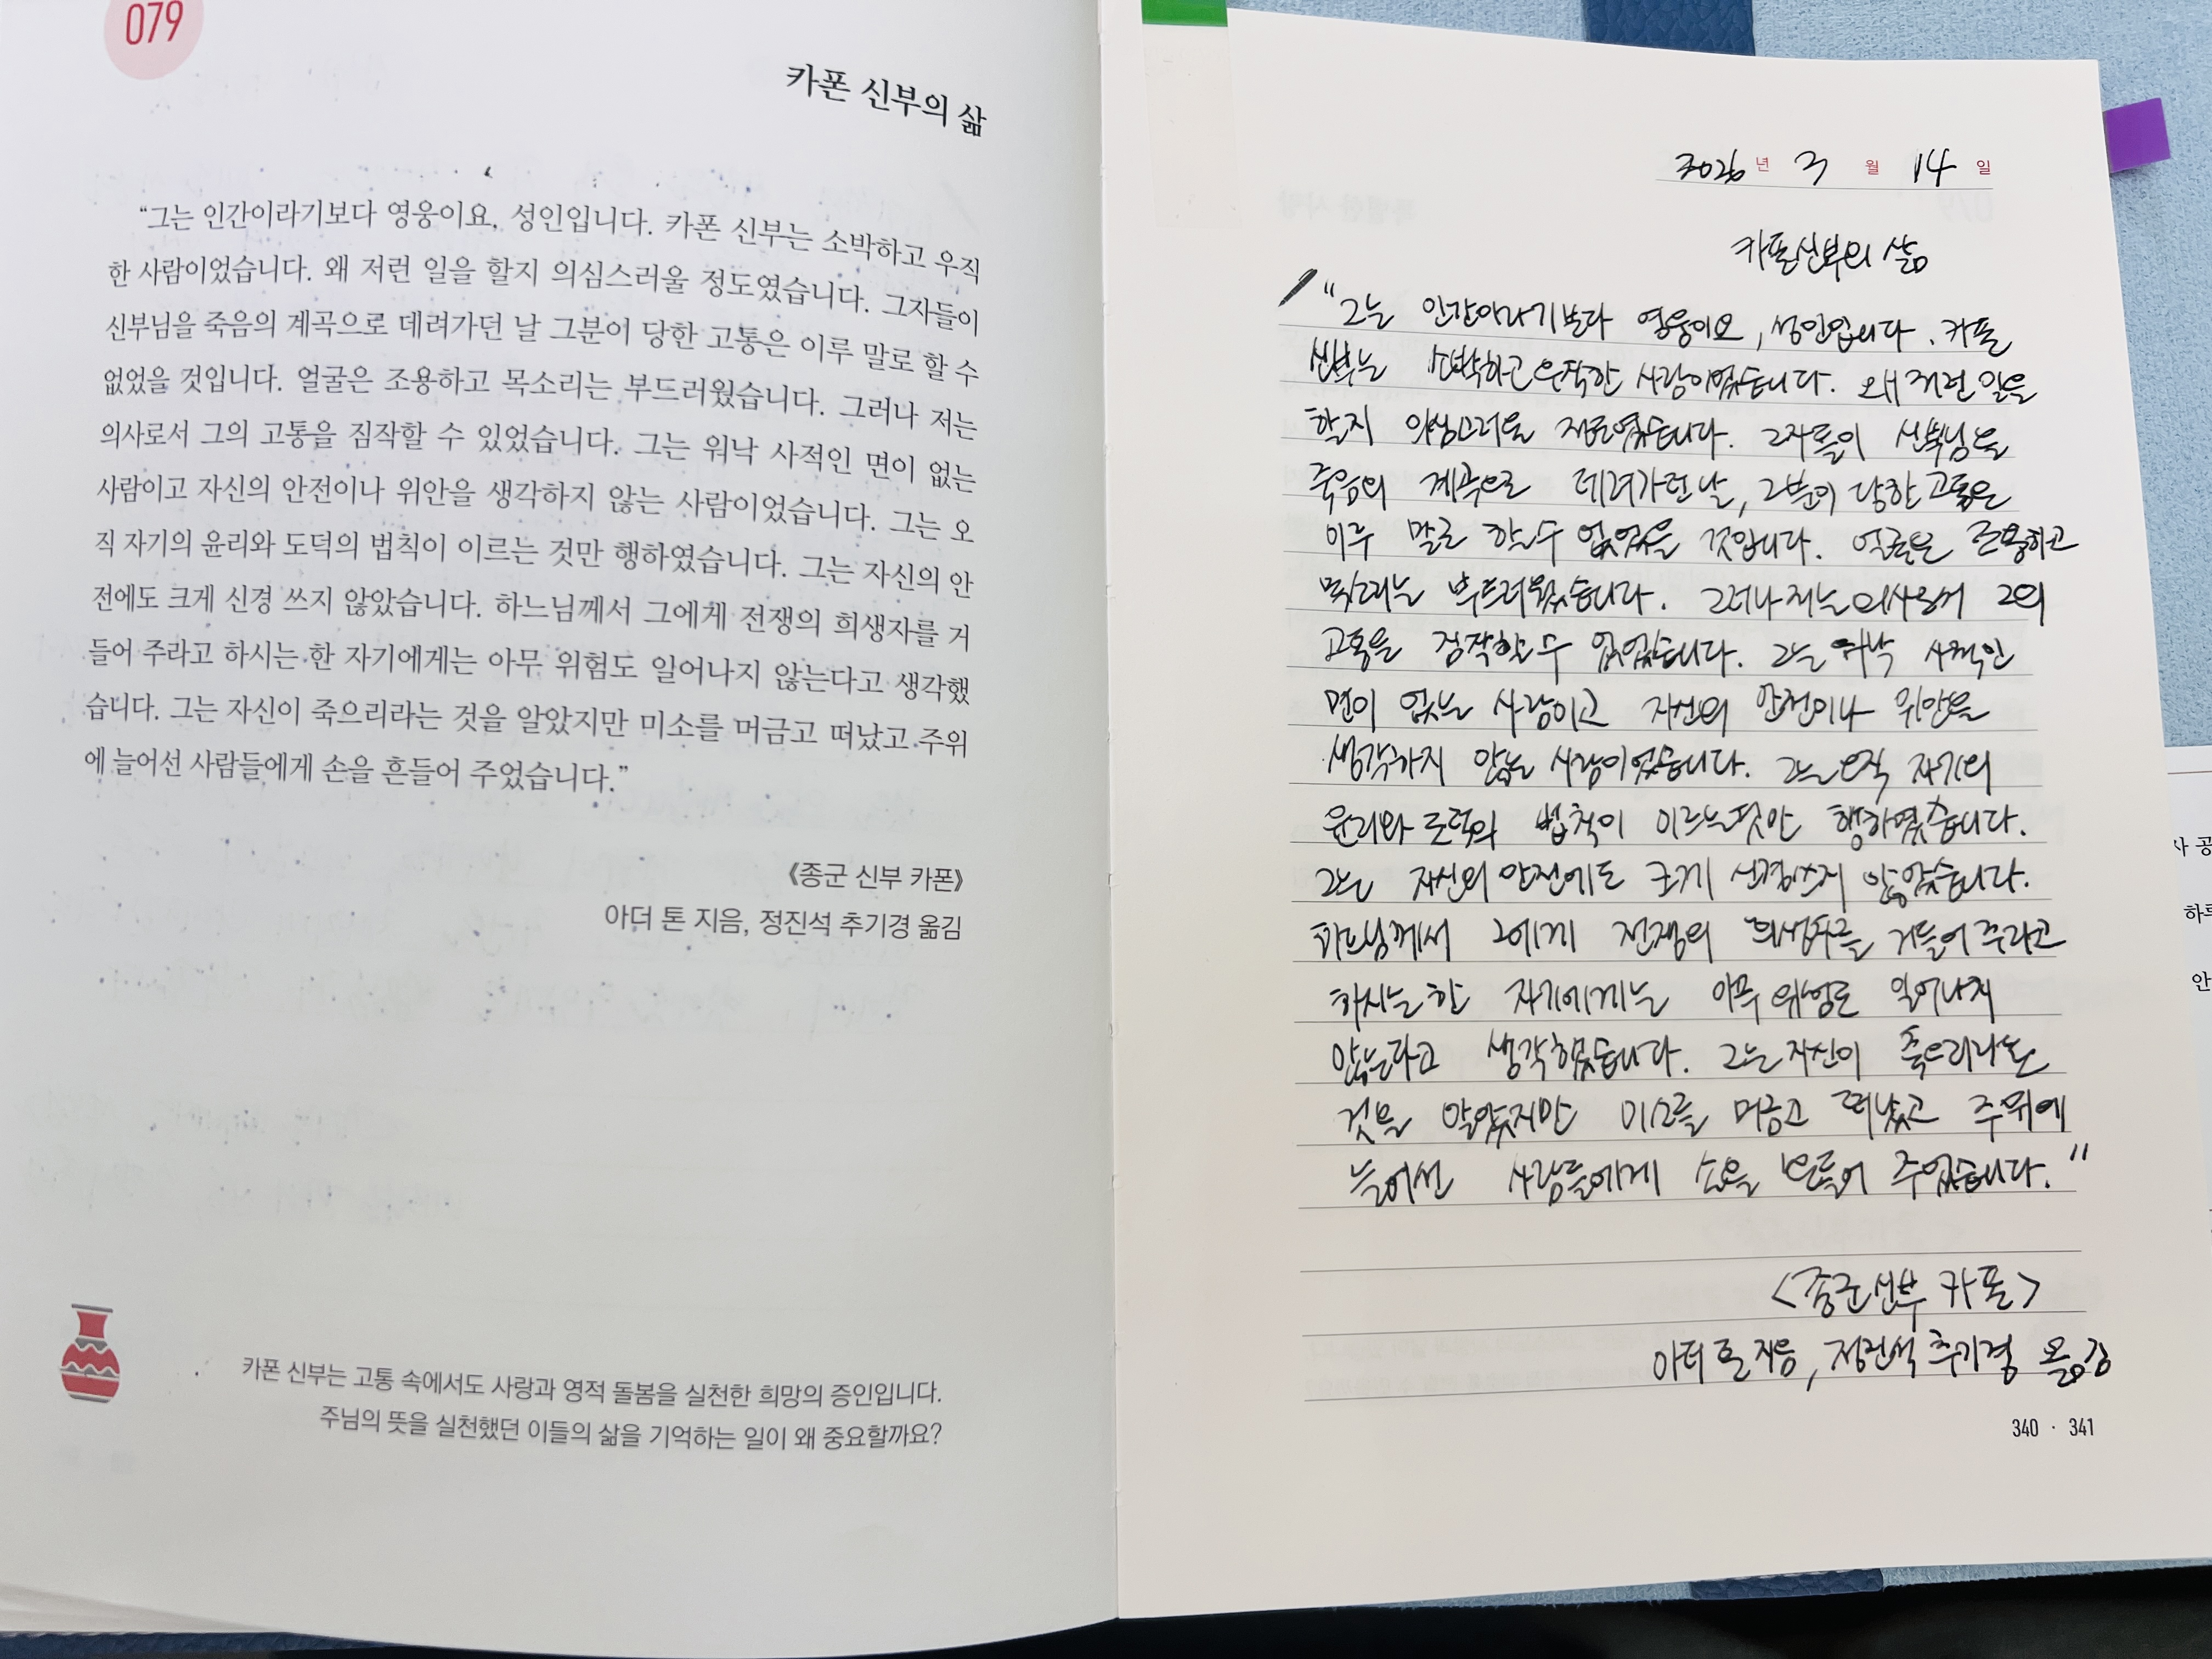 079
카폰 신부의 삶
“그는 인간이라기보다 영웅이요, 성인입니다. 카폰 신부는 소박하고 우직
한 사람이었습니다. 왜 저런 일을 할지 의심스러울 정도였습니다. 그자들이
신부님을 죽음의 계곡으로 데려가던 날 그분이 당한 고통은 이루 말로 할 수
없었을 것입니다. 얼굴은 조용하고 목소리는 부드러웠습니다. 그러나 저는
의사로서 그의 고통을 짐작할 수 있었습니다. 그는 워낙 사적인 면이 없는
사람이고 자신의 안전이나 위안을 생각하지 않는 사람이었습니다. 그는 오
직 자기의 윤리와 도덕의 법칙이 이르는 것만 행하였습니다. 그는 자신의 안
전에도 크게 신경 쓰지 않았습니다. 하느님께서 그에게 전쟁의 희생자를 거
들어 주라고 하시는 한 자기에게는 아무 위험도 일어나지 않는다고 생각했
습니다. 그는 자신이 죽으리라는 것을 알았지만 미소를 머금고 떠났고 주위
에 늘어선 사람들에게 손을 흔들어 주었습니다.”
《종군 신부 카폰》
아더 톤 지음, 정진석 추기경 옮김
카폰 신부는 고통 속에서도 사랑과 영적 돌봄을 실천한 희망의 증인입니다.
주님의 뜻을 실천했던 이들의 삶을 기억하는 일이 왜 중요할까요?
2026 년 3 월 14 일
카폰신부의 삶
“그는 인간이라기보다 영웅이요, 성인입니다. 카폰
신부는 소박하고 우직한 사람이었습니다. 왜 저런 일을
할지 의심스러울 정도였습니다. 그자들이 신부님을
죽음의 계곡으로 데려가던 날, 그분이 당한 고통은
이루 말로 할 수 없었을 것입니다. 얼굴은 조용하고
목소리는 부드러웠습니다. 그러나 저는 의사로서 그의
고통을 짐작할 수 있었습니다. 그는 워낙 사적인
면이 없는 사람이고 자신의 안전이나 위안을
생각하지 않는 사람이었습니다. 그는 오직 자기의
윤리와 도덕의 법칙이 이르는 것만 행하였습니다.
그는 자신의 안전에도 크게 신경쓰지 않았습니다.
하느님께서 그에게 전쟁의 희생자를 거들어 주라고
하시는 한 자기에게는 아무 위험도 일어나지
않는다고 생각했습니다. 그는 자신이 죽으리라는
것을 알았지만 미소를 머금고 떠났고 주위에
늘어선 사람들에게 손을 흔들어 주었습니다.”
<종군신부 카폰>
아더 톤 지음, 정진석 추기경 옮김
340 · 341
사 공
하루
안